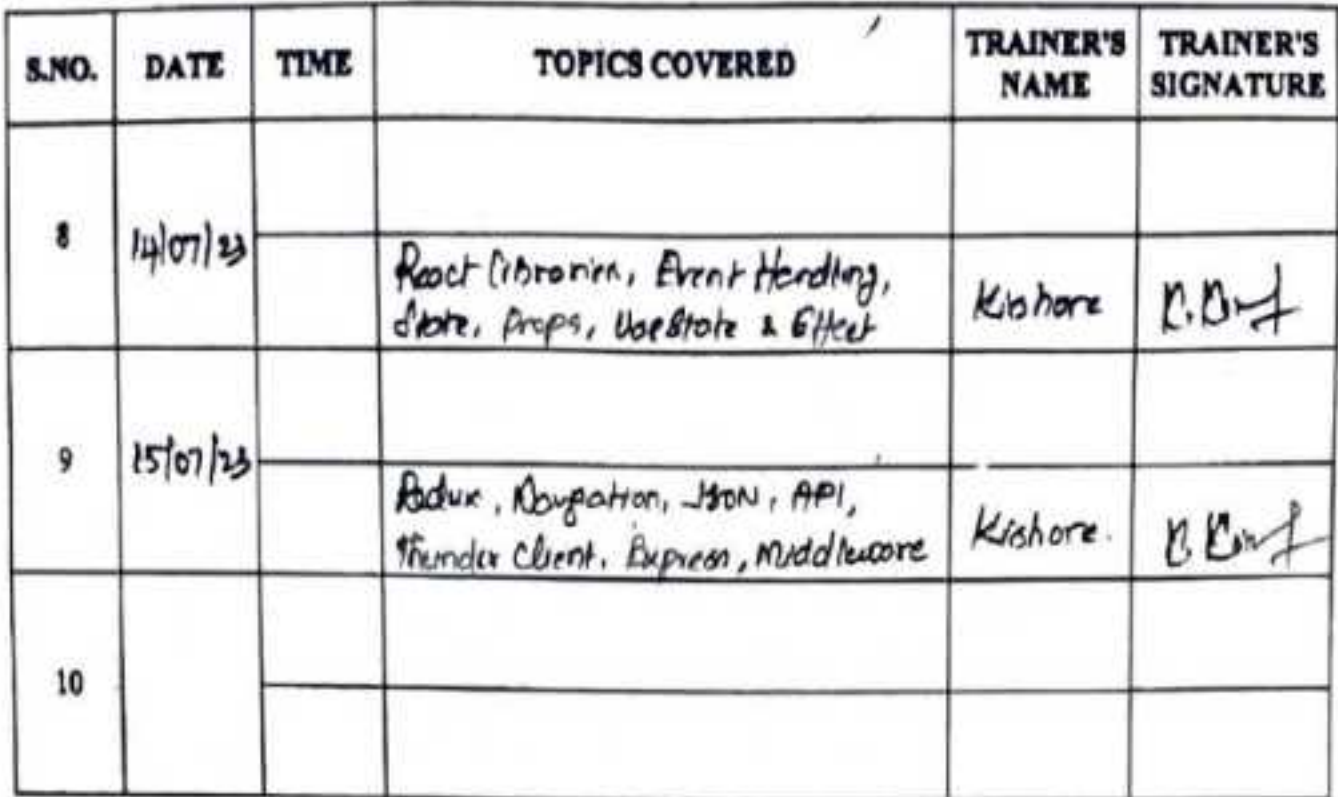 S.NO. DATE TIME TOPICS COVERED TRAINER'S NAME TRAINER'S SIGNATURE
8 14/07/23
React Libraries, Event Handling, Kishore
State, Props, UseState & Effect
9 15/07/23
Redux, Navigation, JSON, API, Kishore.
Thunder Client, Express, Middleware
10